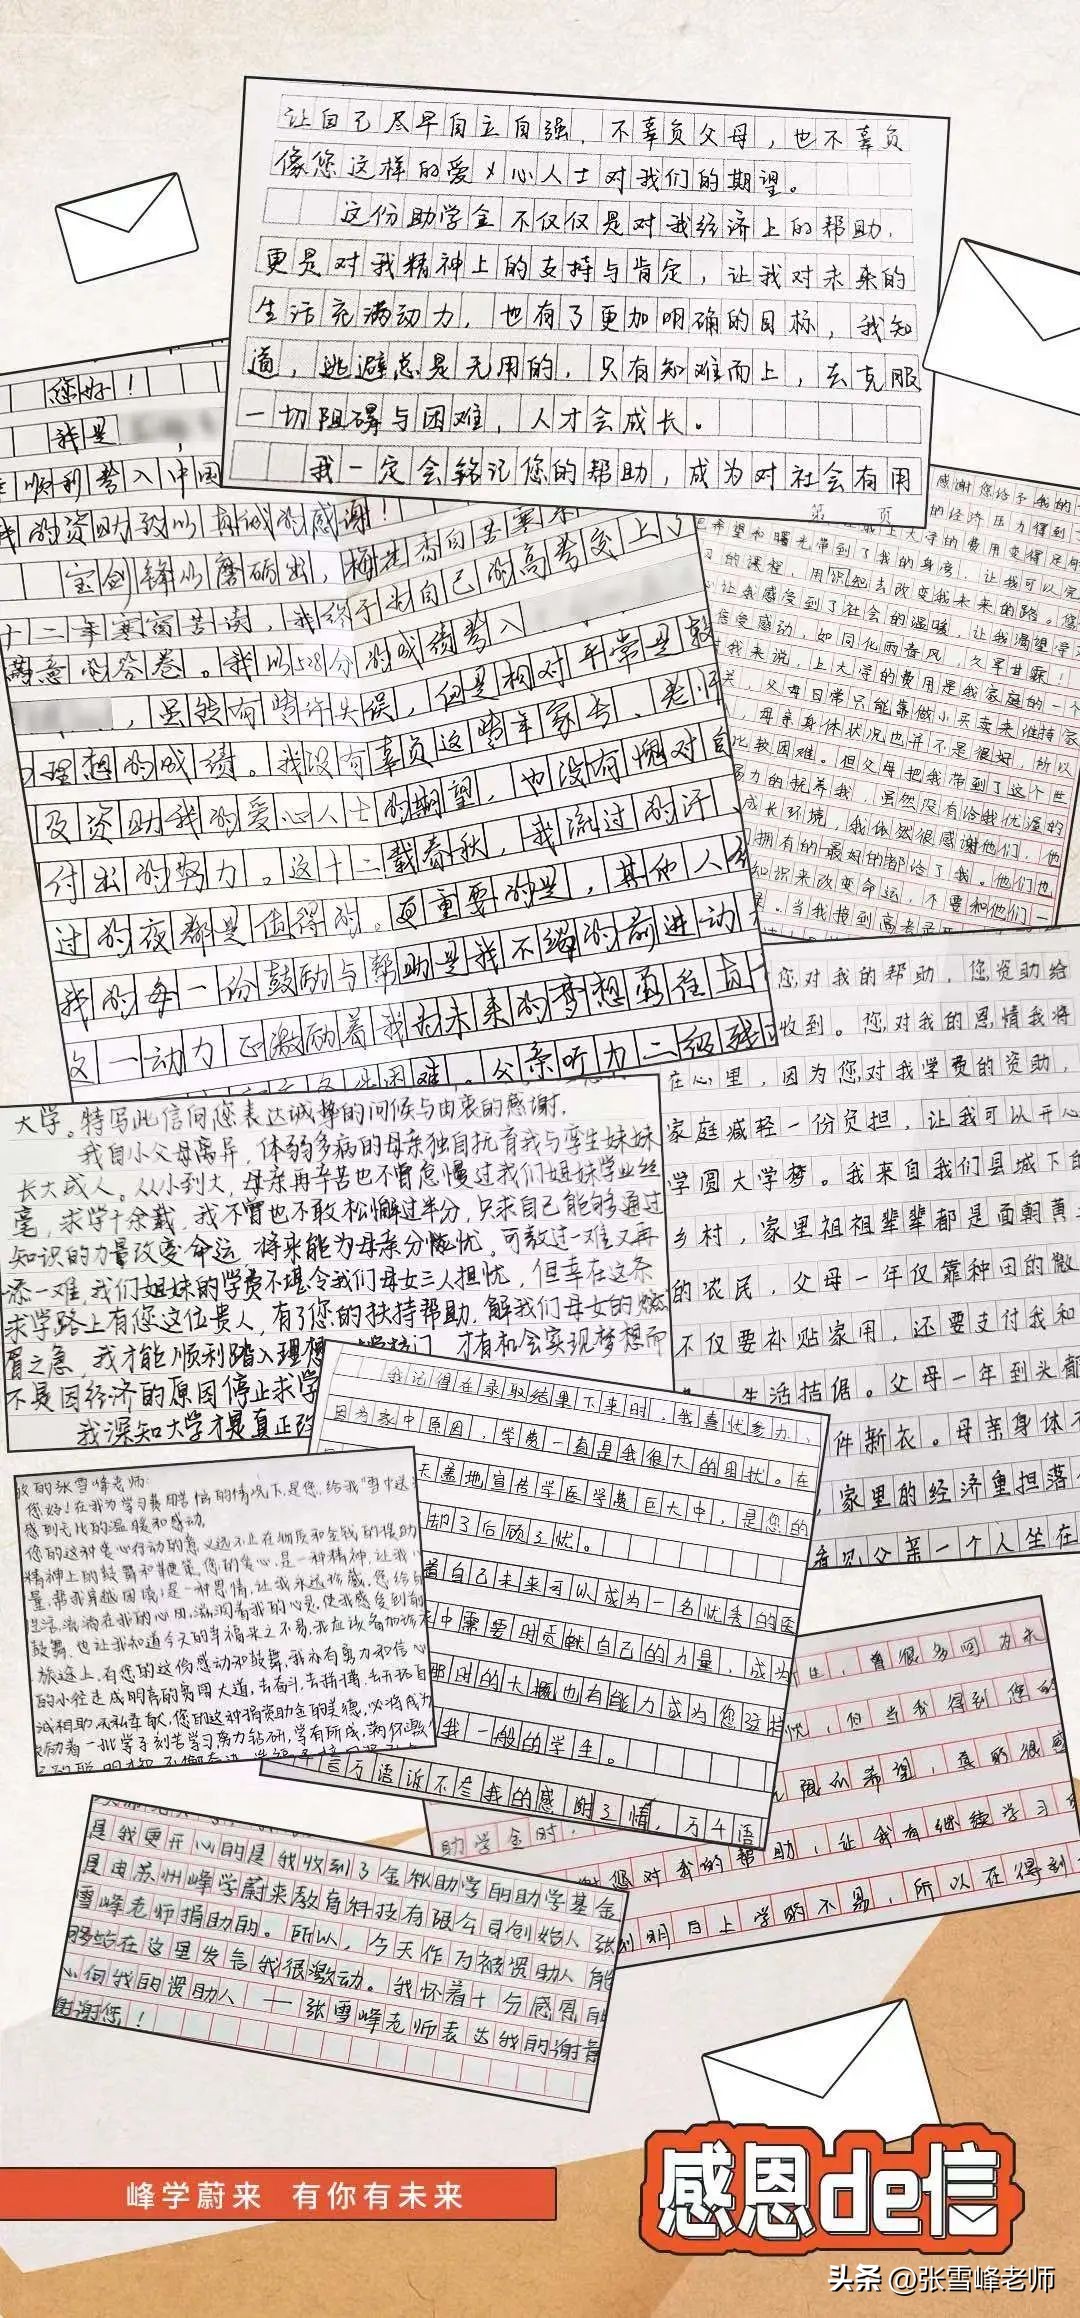 让自己尽早自立自强，不辜负父母，也不辜负
像您这样的爱心人士对我们的期望。
这份助学金不仅仅是对我经济上的帮助，
更是对我精神上的支持与肯定，让我对未来的
生活充满动力，也有了更加明确的目标，我知
道，逃避总是无用的，只有知难而上，去克服
一切阻碍与困难，人才会成长。
我一定会铭记您的帮助，成为对社会有用
第 页
您好！
我是
顺利考入中国
我的资助致以真诚的感谢！
宝剑锋从磨砺出，梅花香自苦寒来
十二年寒窗苦读，我终于为自己的高考交上了
满意的答卷。我以528分的成绩考入
，虽然有些许失误，但是相对平常是较
理想的成绩。我没有辜负这些年家长、老师
及资助我的爱心人士的期望，也没有愧对自
付出的努力。这十二载春秋，我流过的汗、
过的夜都是值得的。更重要的是，其他人给
我的每一份鼓励与帮助是我不竭的前进动
这一动力正激励着我为未来的梦想勇往直
父亲听力二级残
感谢您给予我的
的经济压力得到
上大学的费用变得足够
希望和曙光带到了我的身旁，让我可以完
的课程，用识知去改变我未来的路。您
让我感受到了社会的温暖，让我渴望学
倍受感动，如同化雨春风，久旱甘霖！
对我来说，上大学的费用是我家庭的一个
父母日常只能靠做小买卖来维持家
，母亲身体状况也并不是很好，所以
比较困难。但父母把我带到了这个世
努力的抚养我，虽然没有给我优渥的
成长环境，我依然很感谢他们，他
拥有的最好的都给了我。他们也
知识来改变命运，不要和他们一
。当我接到高考录
您对我的帮助，您资助给
收到。您对我的恩情我将
在心里，因为您对我学费的资助，
家庭减轻一份负担，让我可以开心
学圆大学梦。我来自我们县城下的
乡村，家里祖祖辈辈都是面朝黄
的农民，父母一年仅靠种田的微
不仅要补贴家用，还要支付我和
生活拮据。父母一年到头都
件新衣。母亲身体不
，家里的经济重担落
看见父亲一个人坐在
大学。特写此信向您表达诚挚的问候与由衷的感谢．
我自小父母离异，体弱多病的母亲独自抚育我与孪生妹妹
长大成人。从小到大，母亲再辛苦也不曾怠慢过我们姐妹学业丝
毫，求学十余载，我不曾也不敢松懈过半分，只求自己能够通过
知识的力量改变命运，将来能为母亲分忧。可教过一难又再
添一难，我们姐妹的学费不堪令我们母女三人担忧，但幸在这条
求学路上有您这位贵人，有了您的扶持帮助，解我们母女的燃
眉之急，我才能顺利踏入理想 门，才有机会实现梦想而
不是因经济的原因停止求学
我深知大学才是真正
我记得在录取结果下来时，我喜忧参办、
因为家中原因，学费一直是我很大的困扰。在
天盖地宣传学医学费巨大中，是您的
却了后顾之忧。
着自己未来可以成为一名优秀的医
中需要时贡献自己的力量，成为
那时的大概也有能力成为您这样
我一般的学生。
言万语诉不尽我的感谢之情，万千语
敬的张雪峰老师：
您好！在我为学习费用苦恼的情况下，是您，给我“雪中送
感到无比的温暖和感动。
您的这种爱心行动的意义远不止在物质和金钱的援助
精神上的鼓舞和鞭策。您的爱心，是一种精神，让我
量，帮我穿越困境；是一种恩情，让我永远珍藏。您给
生活，流淌在我的心田，滋润着我的心灵，使我感受到前
鼓舞，也让我知道今天的幸福来之不易，我应该备加珍
旅途上，有您的这份感动和鼓舞，我亦有勇力和信心
的小径走成明亮的宽阔大道，去奋斗，去拼搏，去开拓自
诚相助无私奉献，您的这种捐资助金的美德，必将成为
励着一批学子刻苦学习努力钻研，学有所成，满怀激
生，曾很多回为永
忧，但当我得到您的
限的希望，真的很感
助学金时，
您对我的帮助，让我有继续学习
明白上学的不易，所以在得到
是我更开心的是我收到了金秋助学的助学基金
是由苏州峰学蔚来教育科技有限公司创始人张
雪峰老师捐助的。所以，今天作为被资助人能
够站在这里发言我很激动。我怀着十分感恩的
心向我的资助人——张雪峰老师表达我的谢意
谢谢您！
感恩de信
峰学蔚来 有你有未来
头条 @张雪峰老师